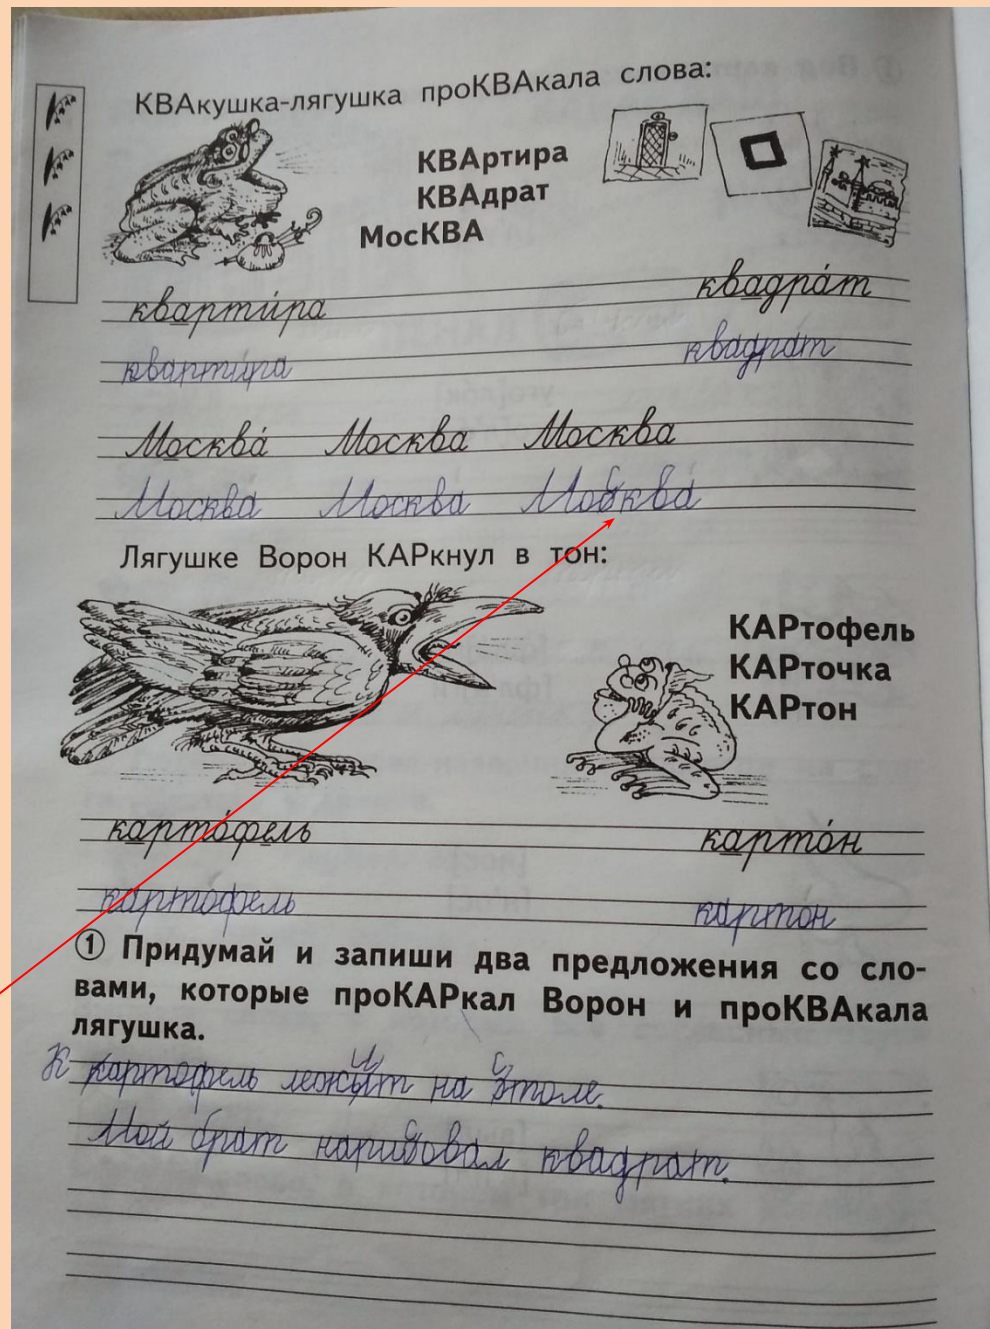 КВАкушка-лягушка проКВАкала слова:
КВАртира
КВАдрат
МосКВА
кварти́ра квадра́т
квартира квадрат
Москва́ Москва Москва
Москва́ Москва Москва́
Лягушке Ворон КАРкнул в тон:
КАРтофель
КАРточка
КАРтон
карто́фель карто́н
карто́фель картон
① Придумай и запиши два предложения со сло-
вами, которые проКАРкал Ворон и проКВАкала
лягушка.
картофель лежит на столе.
Мой брат нарисовал квадрат.